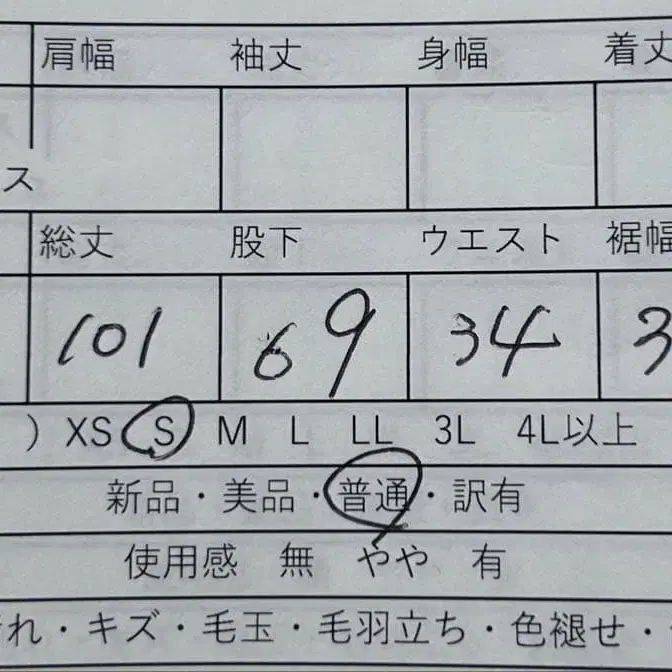 肩幅 袖丈 身幅 着丈
ス
総丈 股下 ウエスト 裾幅
101 69 34 3
) XS S M L LL 3L 4L以上
新品・美品・普通・訳有
使用感 無 やや 有
れ・キズ・毛玉・毛羽立ち・色褪せ・